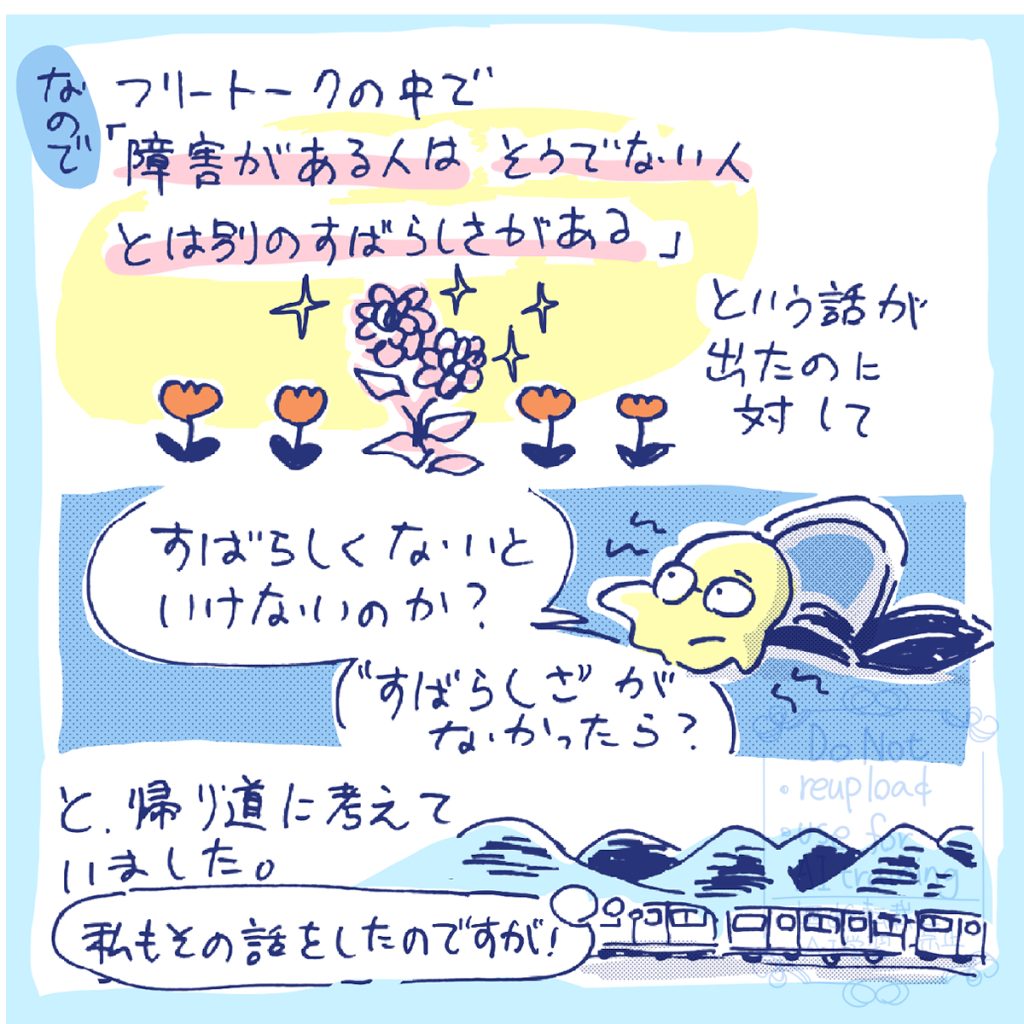 なので
フリートークの中で
「障害がある人は そうでない人
とは別のすばらしさがある」
という話が
出たのに
対して
すばらしくないと
いけないのか?
"すばらしさ"が
なかったら?
と、帰り道に考えて
いました。
私もその話をしたのですが!
Do Not
・reupload
・use for
AI training